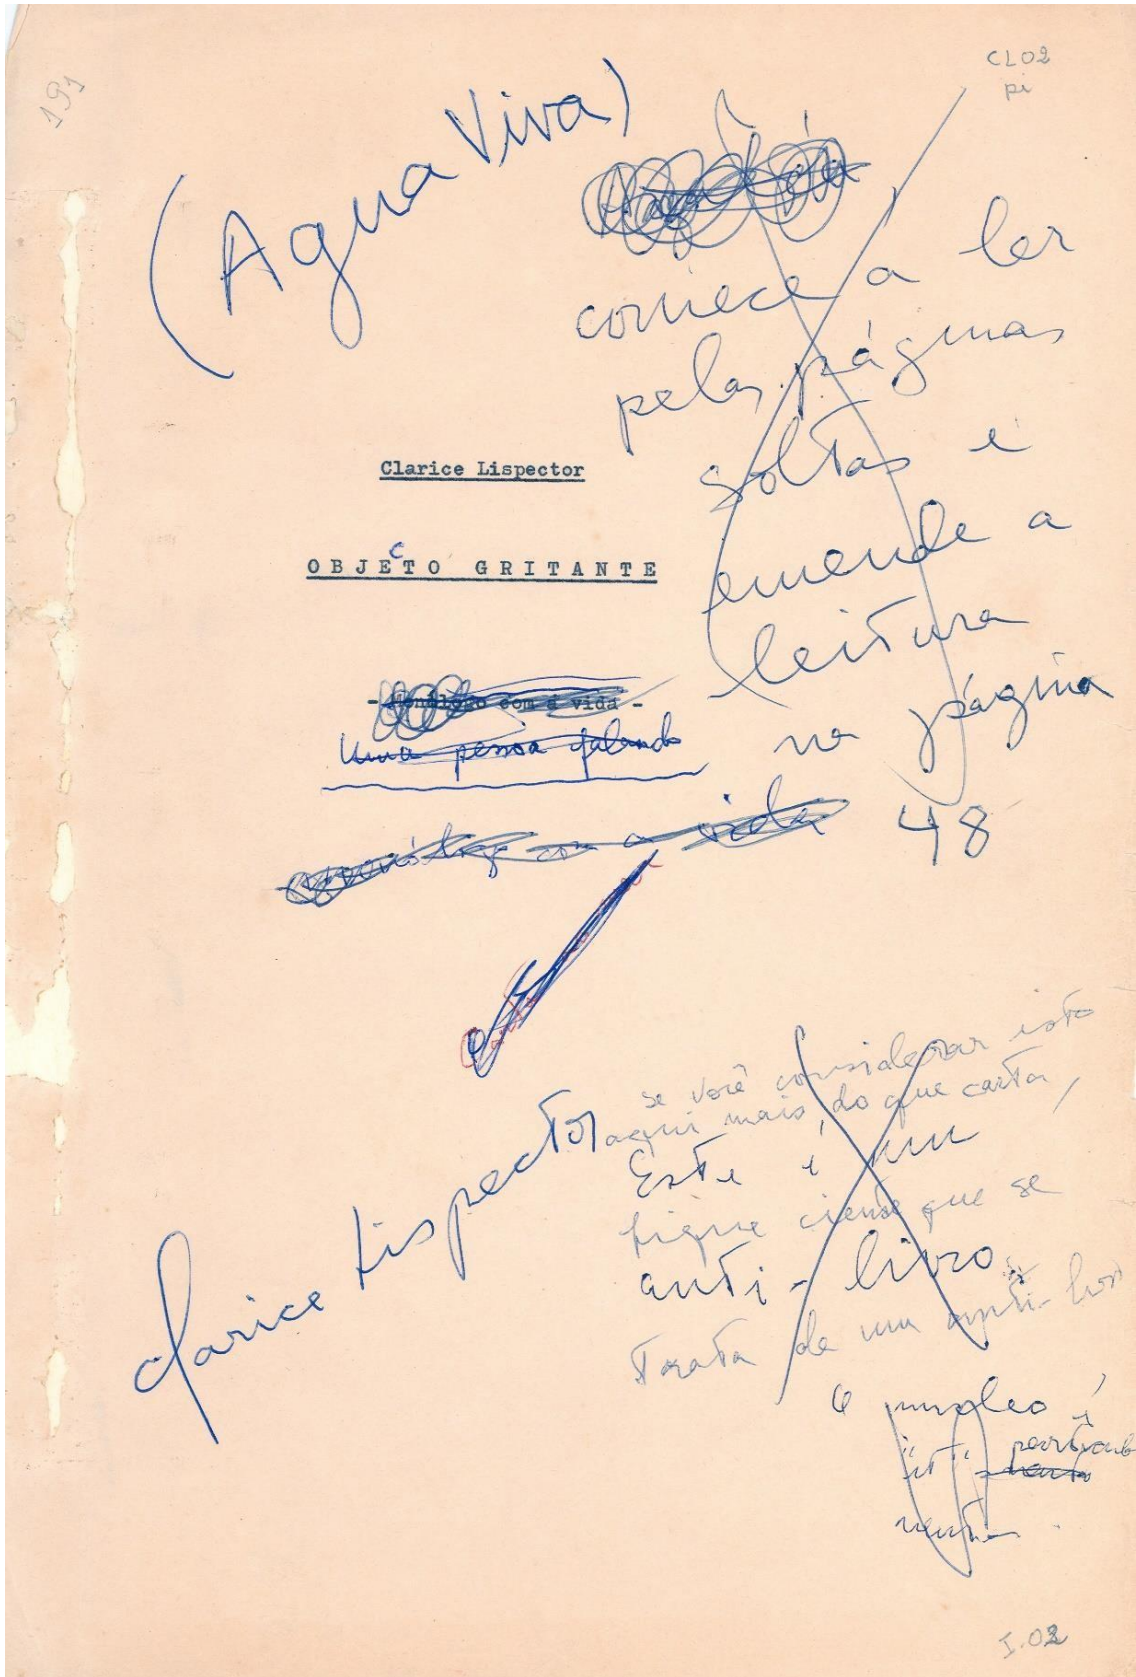 CL02
pi
191
(Agua Viva)
comece a ler
pelas páginas
soltas e
emende a
leitura
na página
48
Clarice Lispector
OBJECTO GRITANTE
- Monólogo com a vida -
Uma pessoa falando
monólogo com a vida
Clarice Lispector
se você considerar isto
aqui mais do que carta,
Este é um
fique ciente que se
anti-livro.
trata de um anti-livro
O nucleo é
I.02